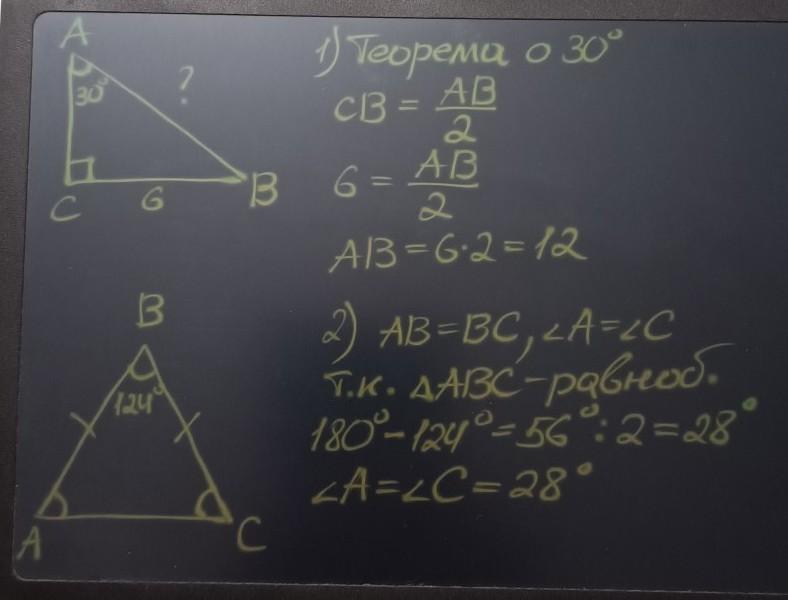 A
30°
?
C
6
B
1) Теорема о 30°
CB = AB/2
6 = AB/2
AB = 6·2 = 12
B
124°
A
C
2) AB = BC, ∠A = ∠C
т.к. △ABC - равноб.
180° - 124° = 56° : 2 = 28°
∠A = ∠C = 28°